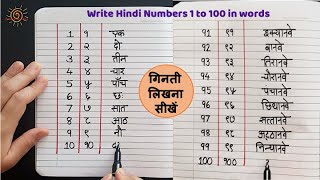 Write Hindi Numbers 1 to 100 in words
1 १ एक
2 २ दो
3 ३ तीन
4 ४ चार
5 ५ पाँच
6 ६ छः
7 ७ सात
8 ८ आठ
9 ९ नौ
10 १० द
गिनती
लिखना
सीखें
91 ९१ इक्यानवे
92 ९२ बानवे
93 ९३ तिरानवे
94 ९४ चौरानवे
95 ९५ पंचानवे
96 ९६ छियानवे
97 ९७ सत्तानवे
98 ९८ अट्ठानवे
99 ९९ निन्यानवे
100 १००